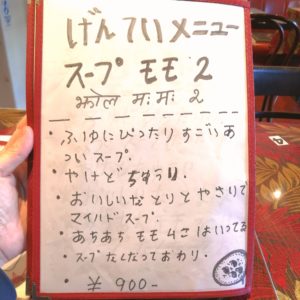 げんていメニュー
スープ モモ 2
झोल मःमः 2
・ふゆにぴったり すごいあ
ついスープ.
・やけどちゅうい.
・おいしいなとりとやさいで
マイルドスープ.
・あちあち モモ 4こはいってる
・スープなくなっておわり.
・¥900-